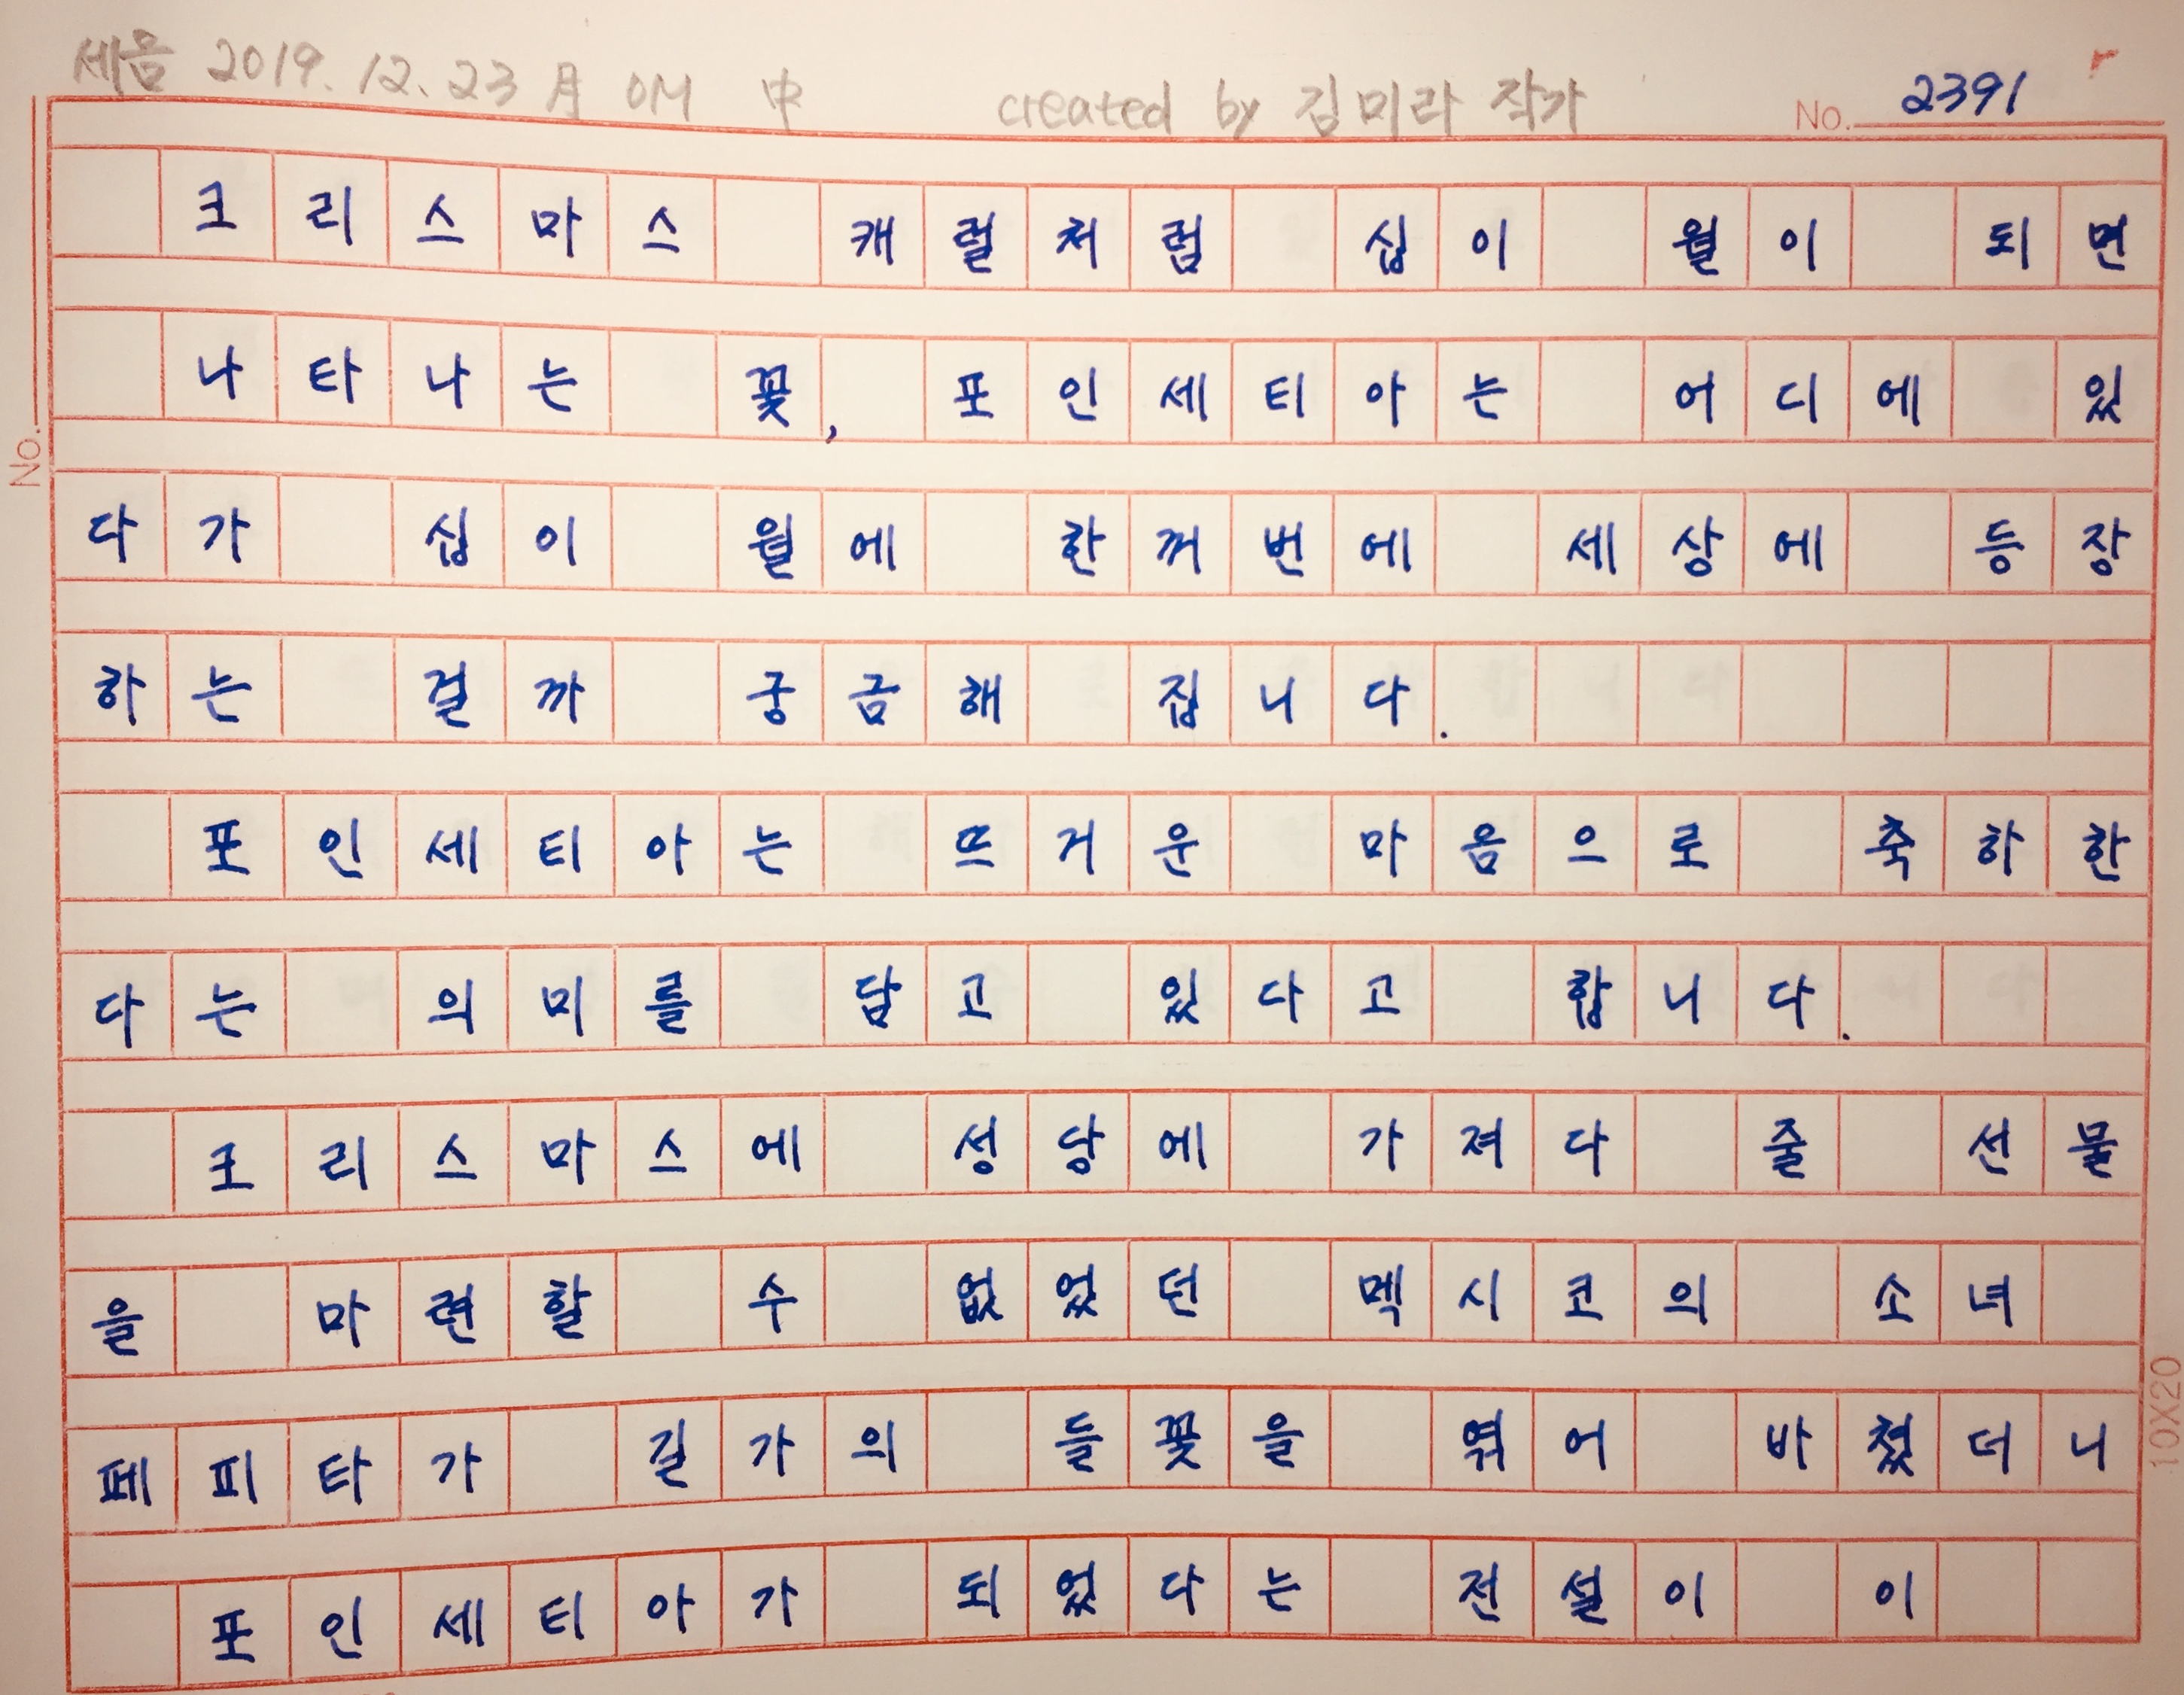 세음 2019. 12. 23 月 OM 中 created by 김미라 작가 No. 2391
크리스마스 캐럴처럼 십이 월이 되면
나타나는 꽃, 포인세티아는 어디에 있
다가 십이 월에 한꺼번에 세상에 등장
하는 걸까 궁금해 집니다.
포인세티아는 뜨거운 마음으로 축하한
다는 의미를 담고 있다고 합니다.
크리스마스에 성당에 가져다 줄 선물
을 마련할 수 없었던 멕시코의 소녀
페피타가 길가의 들꽃을 엮어 바쳤더니
포인세티아가 되었다는 전설이 이
No.
10X20